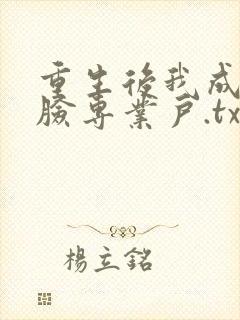 重生後我成
臉專業戶.tx
楊立銘